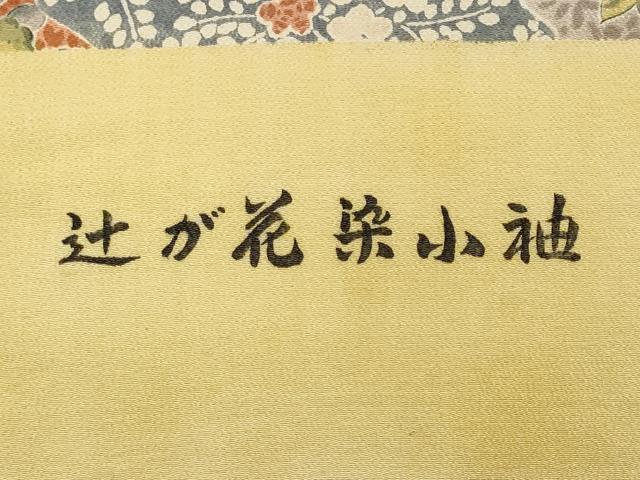 辻が花染小袖